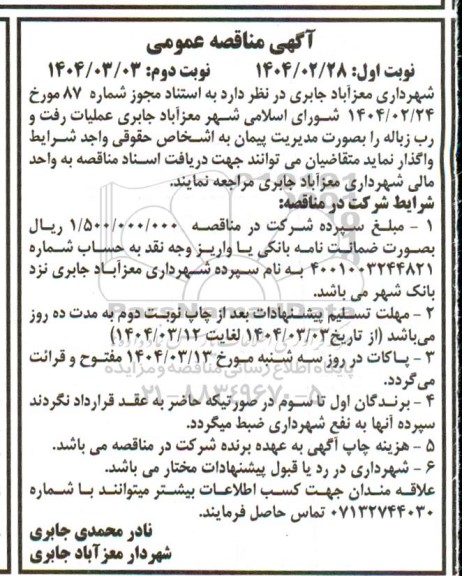 آگهی مناقصه عمومی
نوبت اول: ۱۴۰۴/۰۲/۲۸ نوبت دوم: ۱۴۰۴/۰۳/۰۳
شهرداری معزآباد جابری در نظر دارد به استناد مجوز شماره ۸۷ مورخ
۱۴۰۴/۰۲/۲۴ شورای اسلامی شهر معزآباد جابری عملیات رفت و
رب زباله را بصورت مدیریت پیمان به اشخاص حقوقی واجد شرایط
واگذار نماید متقاضیان می توانند جهت دریافت اسناد مناقصه به واحد
مالی شهرداری معزآباد جابری مراجعه نمایند.
شرایط شرکت در مناقصه:
۱ - مبلغ سپرده شرکت در مناقصه ۱/۵۰۰/۰۰۰/۰۰۰ ریال
بصورت ضمانت نامه بانکی یا واریز وجه نقد به حساب شماره
۴۰۰۱۰۰۳۲۴۴۸۲۱ به نام سپرده شهرداری معزآباد جابری نزد
بانک شهر می باشد.
۲ - مهلت تسلیم پیشنهادات بعد از چاپ نوبت دوم به مدت ده روز
می‌باشد (از تاریخ ۱۴۰۴/۰۳/۰۳ لغایت ۱۴۰۴/۰۳/۱۲)
۳ - پاکات در روز سه شنبه مورخ ۱۴۰۴/۰۳/۱۳ مفتوح و قرائت
می‌گردد.
۴ - برندگان اول تا سوم در صورتیکه حاضر به عقد قرارداد نگردند
سپرده آنها به نفع شهرداری ضبط میگردد.
۵ - هزینه چاپ آگهی به عهده برنده شرکت در مناقصه می باشد.
۶ - شهرداری در رد یا قبول پیشنهادات مختار می باشد.
علاقه مندان جهت کسب اطلاعات بیشتر میتوانند با شماره
۰۷۱۳۲۷۴۴۰۳۰ تماس حاصل فرمایند.
نادر محمدی جابری
شهردار معزآباد جابری
پایگاه اطلاع رسانی مناقصه و مزایده
۰۲۱-۸۸۳۴۹۶۷۰-۵